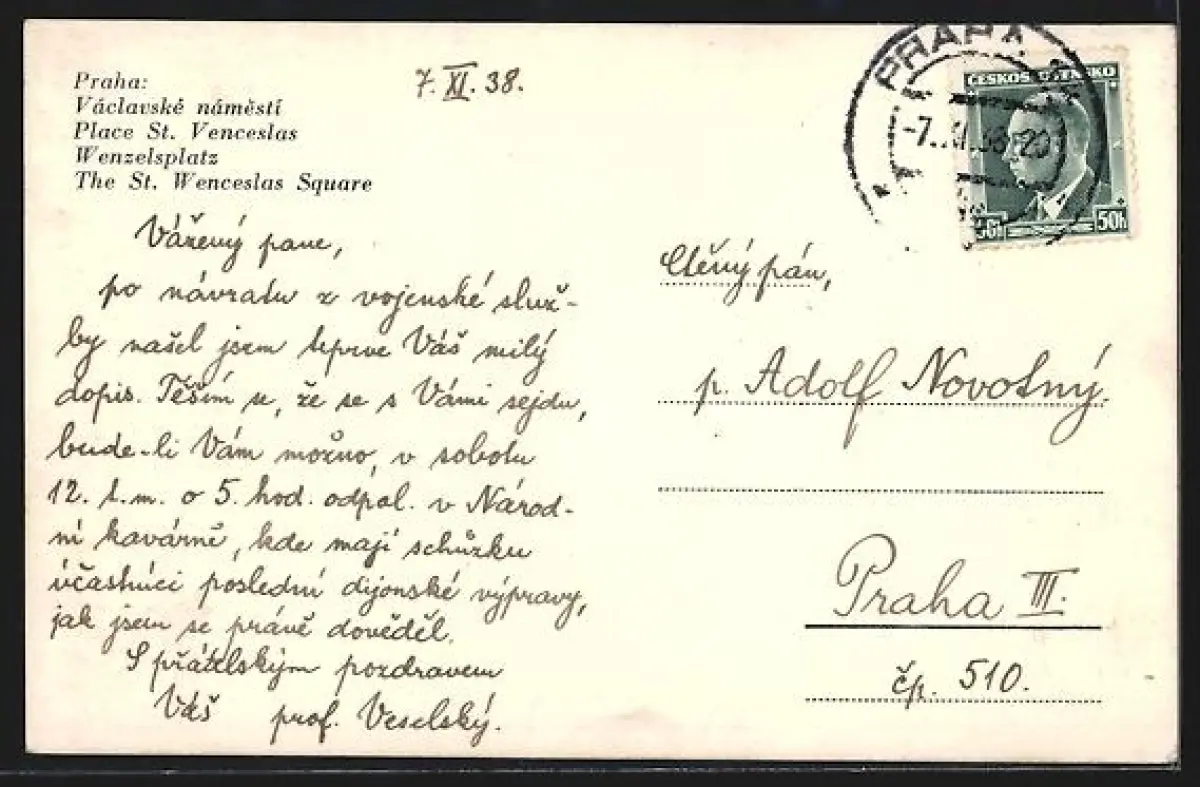 Praha:
Václavské náměstí
Place St. Venceslas
Wenzelsplatz
The St. Wenceslas Square
7. XI. 38.
PRAHA
-7. XI. 38-20
ČESKOSLOVENSKO
50h 50h
Vážený pane,
po návratu z vojenské služ-
by našel jsem teprve Váš milý
dopis. Těším se, že se s Vámi sejdu,
bude-li Vám možno, v sobotu
12. t.m. o 5. hod. odpol. v Národ-
ní kavárně, kde mají schůzku
účastníci poslední dijonské výpravy,
jak jsem se právě dověděl.
S přátelským pozdravem
Váš prof. Veselský.
Ctěný pán,
p. Adolf Novotný.
Praha III.
čp. 510.